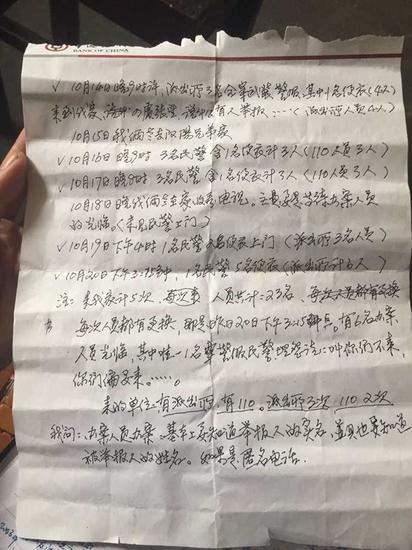 BANK OF CHINA
✓10月14日晚9时许,派出所3名全穿制装警服,其中1名便衣(4人)
来到我家,说有人举报……(派出所人员4人)
10月15日我俩去洛阳兄弟家
✓10月16日晚9时 3名民警含1名便衣计3人(110人员3人)
✓10月17日晚8时3名民警含1名便衣计3人(110人员3人)
10月18日晚我俩在家观看电视。主要是等待办案人员
的光临。(未见民警上门)
✓10月19日下午4时1名民警2名便衣上门(派出所3名人员)
✓10月20日下午3:15钟,1名民警5名便衣(派出所计6人)
注:来我家计5次,每次人员共计:23名,每次人员都有更换
每次人员都有更换,那是昨日20日下午3:15钟。有6名办案
人员光临,其中唯一1名穿警服民警埋怨说:叫你们不来,
你们偏要来。……。
来的单位:有派出所,有110。派出所3次 110 2次
我问:办案人员办案:基本上要知道举报人的实名,并且也要知道
被举报人的姓名。如果是匿名电话